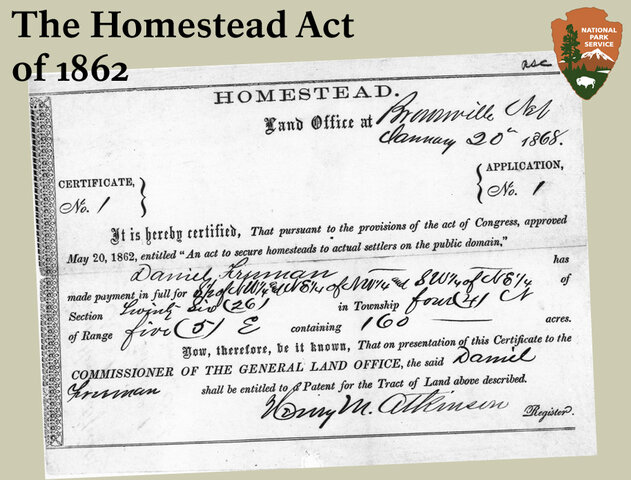 The Homestead Act
of 1862
NATIONAL
PARK
SERVICE
HOMESTEAD.
Land Office at Brownville Neb
January 20th 1868.
CERTIFICATE,
No. 1
APPLICATION,
No. 1
It is hereby certified, That pursuant to the provisions of the act of Congress, approved
May 20, 1862, entitled "An act to secure homesteads to actual settlers on the public domain,"
Daniel Freeman has
made payment in full for S½ of NW¼ and NE¼ of NW¼ and SW¼ of NE¼ of
Section Twenty Six (26) in Township four (4) N
of Range five (5) E containing 160 acres.
Now, therefore, be it known, That on presentation of this Certificate to the
COMMISSIONER OF THE GENERAL LAND OFFICE, the said Daniel
Freeman shall be entitled to a Patent for the Tract of Land above described.
Henry M. Atkinson Register.